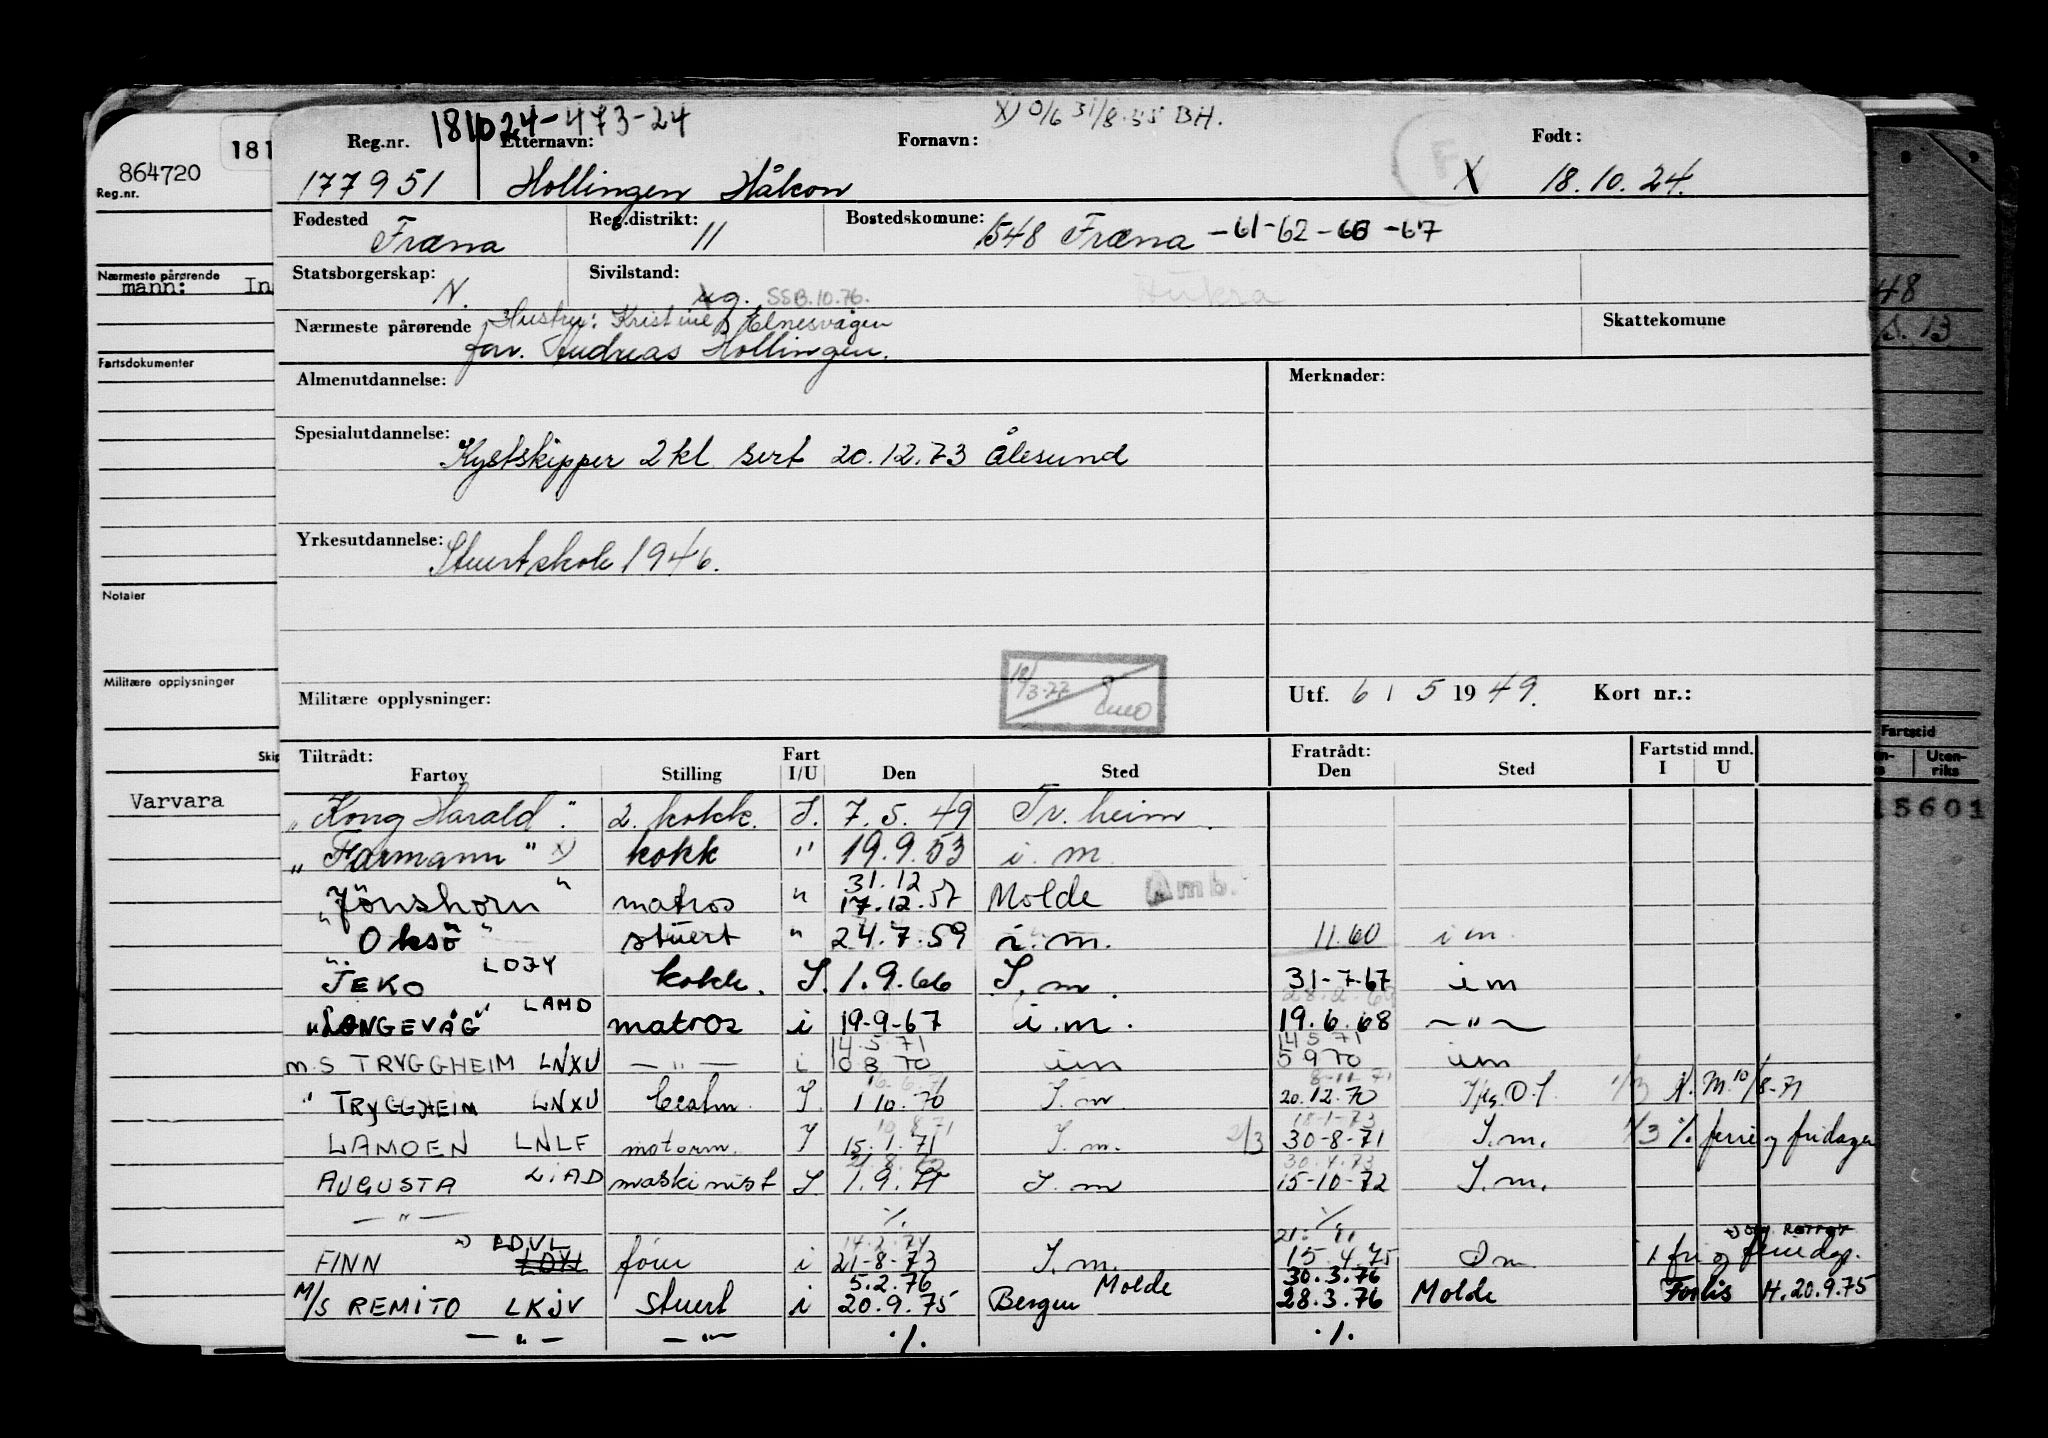 181024-473-24
X) 0/6 31/8-55 BH.
Reg.nr. Etternavn: Fornavn: Født:
177951 Hollingen Håkon X 18.10.24.
F
Fødested Fræna Reg.distrikt: 11 Bostedskomune: 1548 Fræna -61-62-66-67
Statsborgerskap: N. Sivilstand: ug. SSB.10.76. Aukra
Nærmeste pårørende Hustru: Kristine, Elnesvågen Skattekomune
far. Andreas Hollingen.
Almenutdannelse: Merknader:
Spesialutdannelse: Kystskipper 2kl sert 20.12.73 Ålesund
Yrkesutdannelse: Stuertskole 1946.
Militære opplysninger: Utf. 6 / 5 1949. Kort nr.:
Tiltrådt: Fart Fratrådt: Fartstid mnd.
Fartøy Stilling I/U Den Sted Den Sted I U
"Kong Harald". 2. kokk. I. 7.5.49 Tr.heim.
"Farmann" x) kokk " 19.9.53 i.m.
31.12
"Jönshorn" matros " 17.12.57 Molde Amb.
"Oksö" stuert " 24.7.59 i.m. 11.60 im.
"JEKO LOJY kokk. I. 1.9.66 I.m. 31-7-67 im
"LANGEVÅG" LAMD matros i 19-9-67 i.m. 19.6.68 — " —
14.5.71 14 5 71
m.S TRYGGHEIM LNXU — " — i 10 8 70 im 5 9 70 im
8-11-71
" TRYGGHEIM LNXU I. 1 10.70 I.m 20.12.70 1/3 M. 10/8-71
19.8.71 18-1-73
LAMOEN LNLF motorm. I 15.1.71 I.m. 2/3 30-8-71 I.m. 1/3 % ferie og fridager
30.4.73
AUGUSTA LiAD maskinist I. 1.9.71 I.m 15-10-72 I.m.
— " — %. %.
14.2.74
FINN LDVL fører i 21-8-73 I.m. 15.4.75 im
5.2.76 30.3.76
M/S REMITO LKJV stuert i 20.9.75 Bergen Molde 28.3.76 Molde H.20.9.75
— " — — " — ·/. ·/.
864720 181
Reg.nr.
Nærmeste pårørende
mann: In
Fartsdokumenter
Notater
Militære opplysninger
Skip
Varvara
48
S. 13
Fartstid
Uten-
riks
15601